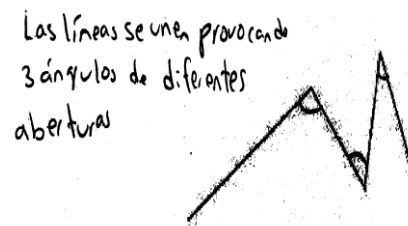 Las líneas se unen provocando
3 ángulos de diferentes
aberturas